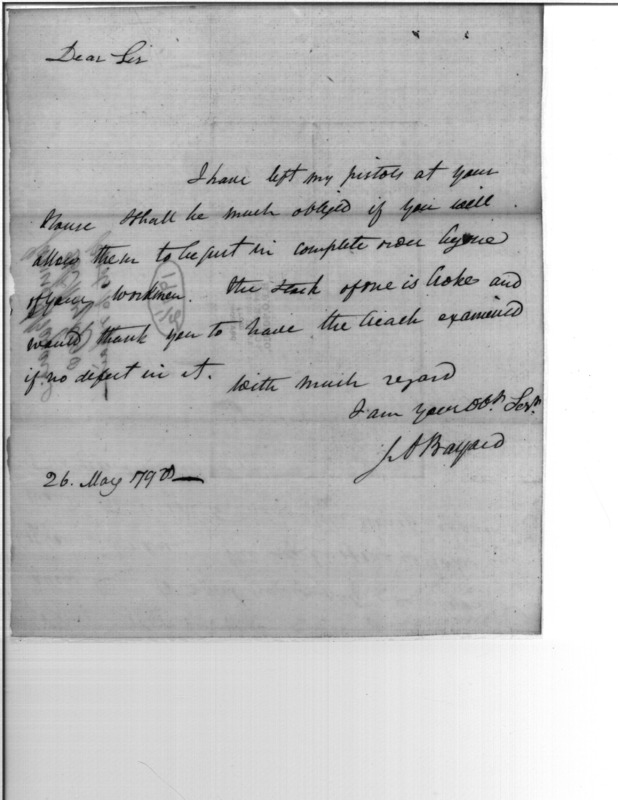 Dear Sir
I have left my pistols at your
House shall be much obliged if you will
allow them to be put in complete order by one
of your workmen. The stock of one is broke and
would thank you to have the breach examined
if no defect in it. With much regard
I am your Obt. Servt.
J A Bayard
26. May 1798